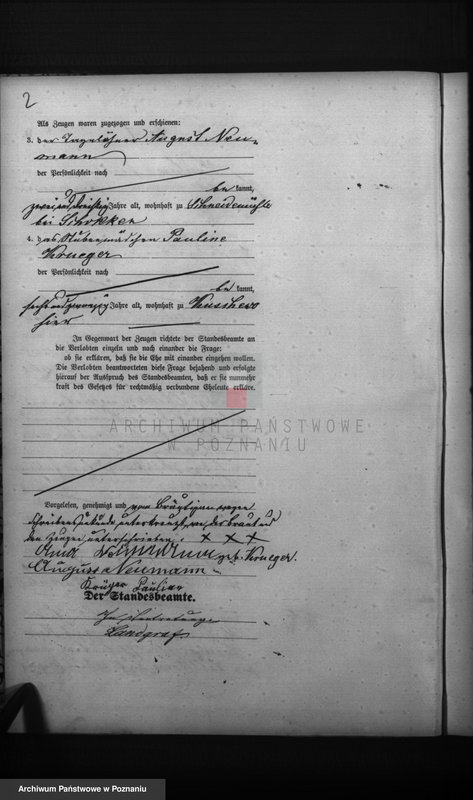 2
Als Zeugen waren zugezogen und erschienen:
3. der Tagelöhner August Neu-
mann
der Persönlichkeit nach
be kannt,
zweiunddreißig Jahre alt, wohnhaft zu Schneidemühle
bei Schokken
4. das Stubenmädchen Pauline
Krueger
der Persönlichkeit nach
be kannt,
sechsundzwanzig Jahre alt, wohnhaft zu
hier
In Gegenwart der Zeugen richtete der Standesbeamte an
die Verlobten einzeln und nach einander die Frage:
ob sie erklären, daß sie die Ehe mit einander eingehen wollen.
Die Verlobten beantworteten diese Frage bejahend und erfolgte
hierauf der Ausspruch des Standesbeamten, daß er sie nunmehr
kraft des Gesetzes für rechtmäßig verbundene Eheleute erkläre.
ARCHIWUM PAŃSTWOWE
W POZNANIU
Vorgelesen, genehmigt und vom Bräutigam wegen
Schreibensunkunde unterkreuzt, von der Braut und
den Zeugen unterschrieben. X X X
geb. Krueger.
August Neumann
Krüger Pauline
Der Standesbeamte.
In Vertretung
Landgraf
Archiwum Państwowe w Poznaniu